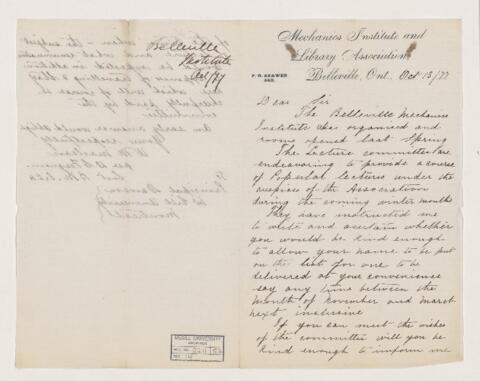 Mechanics Institute and
Library Association
P. O. DRAWER
Belleville, Ont. Oct 13/77
Dear Sir
The Belleville Mechanics
Institute was organised and
rooms opened last Spring
The Lecture committee are
endeavoring to provide a course
of Popular lectures under the
auspices of the Association
during the coming winter months
They have instructed me
to write and ascertain whether
you would be kind enough
to allow your name to be put
on the list for one to be
delivered at your convenience
say any time between the
month of November and March
next inclusive
If you can meet the wishes
of the committee will you be
kind enough to inform me
Belleville
Institute
Oct/77
when the subject
cheerfully paid by the
committee
An early answer would oblige
Yours respectfully
To
Principal Dawson
McGill University
Montreal
McGILL UNIVERSITY
ARCHIVES